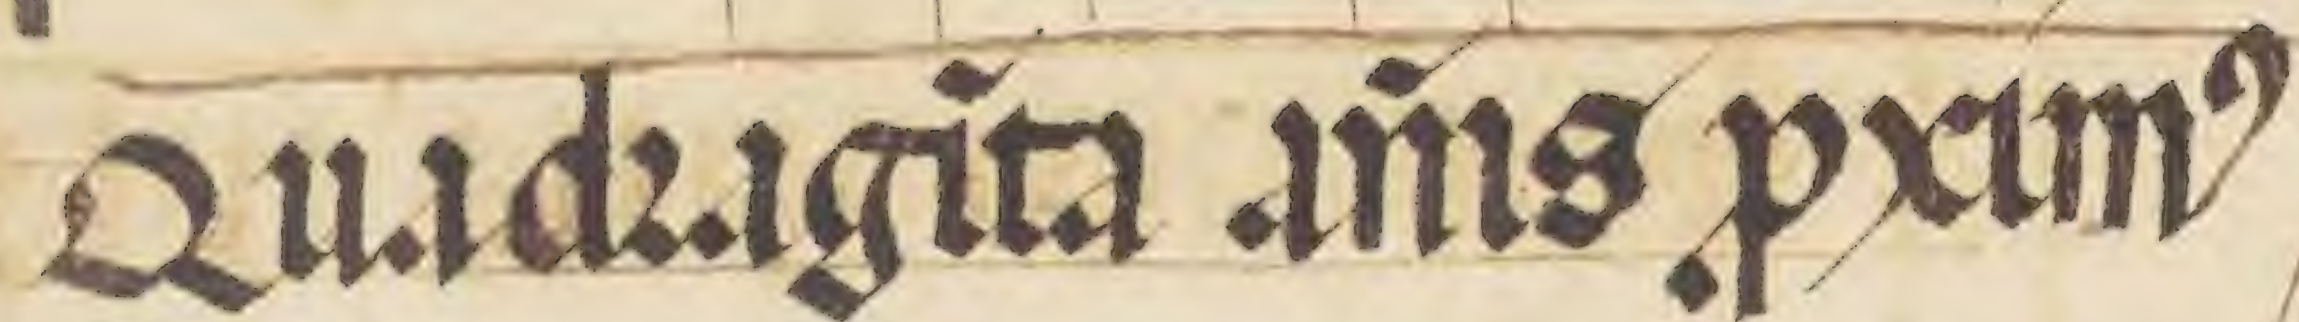 Quadragīta an̄is pxīmꝰ